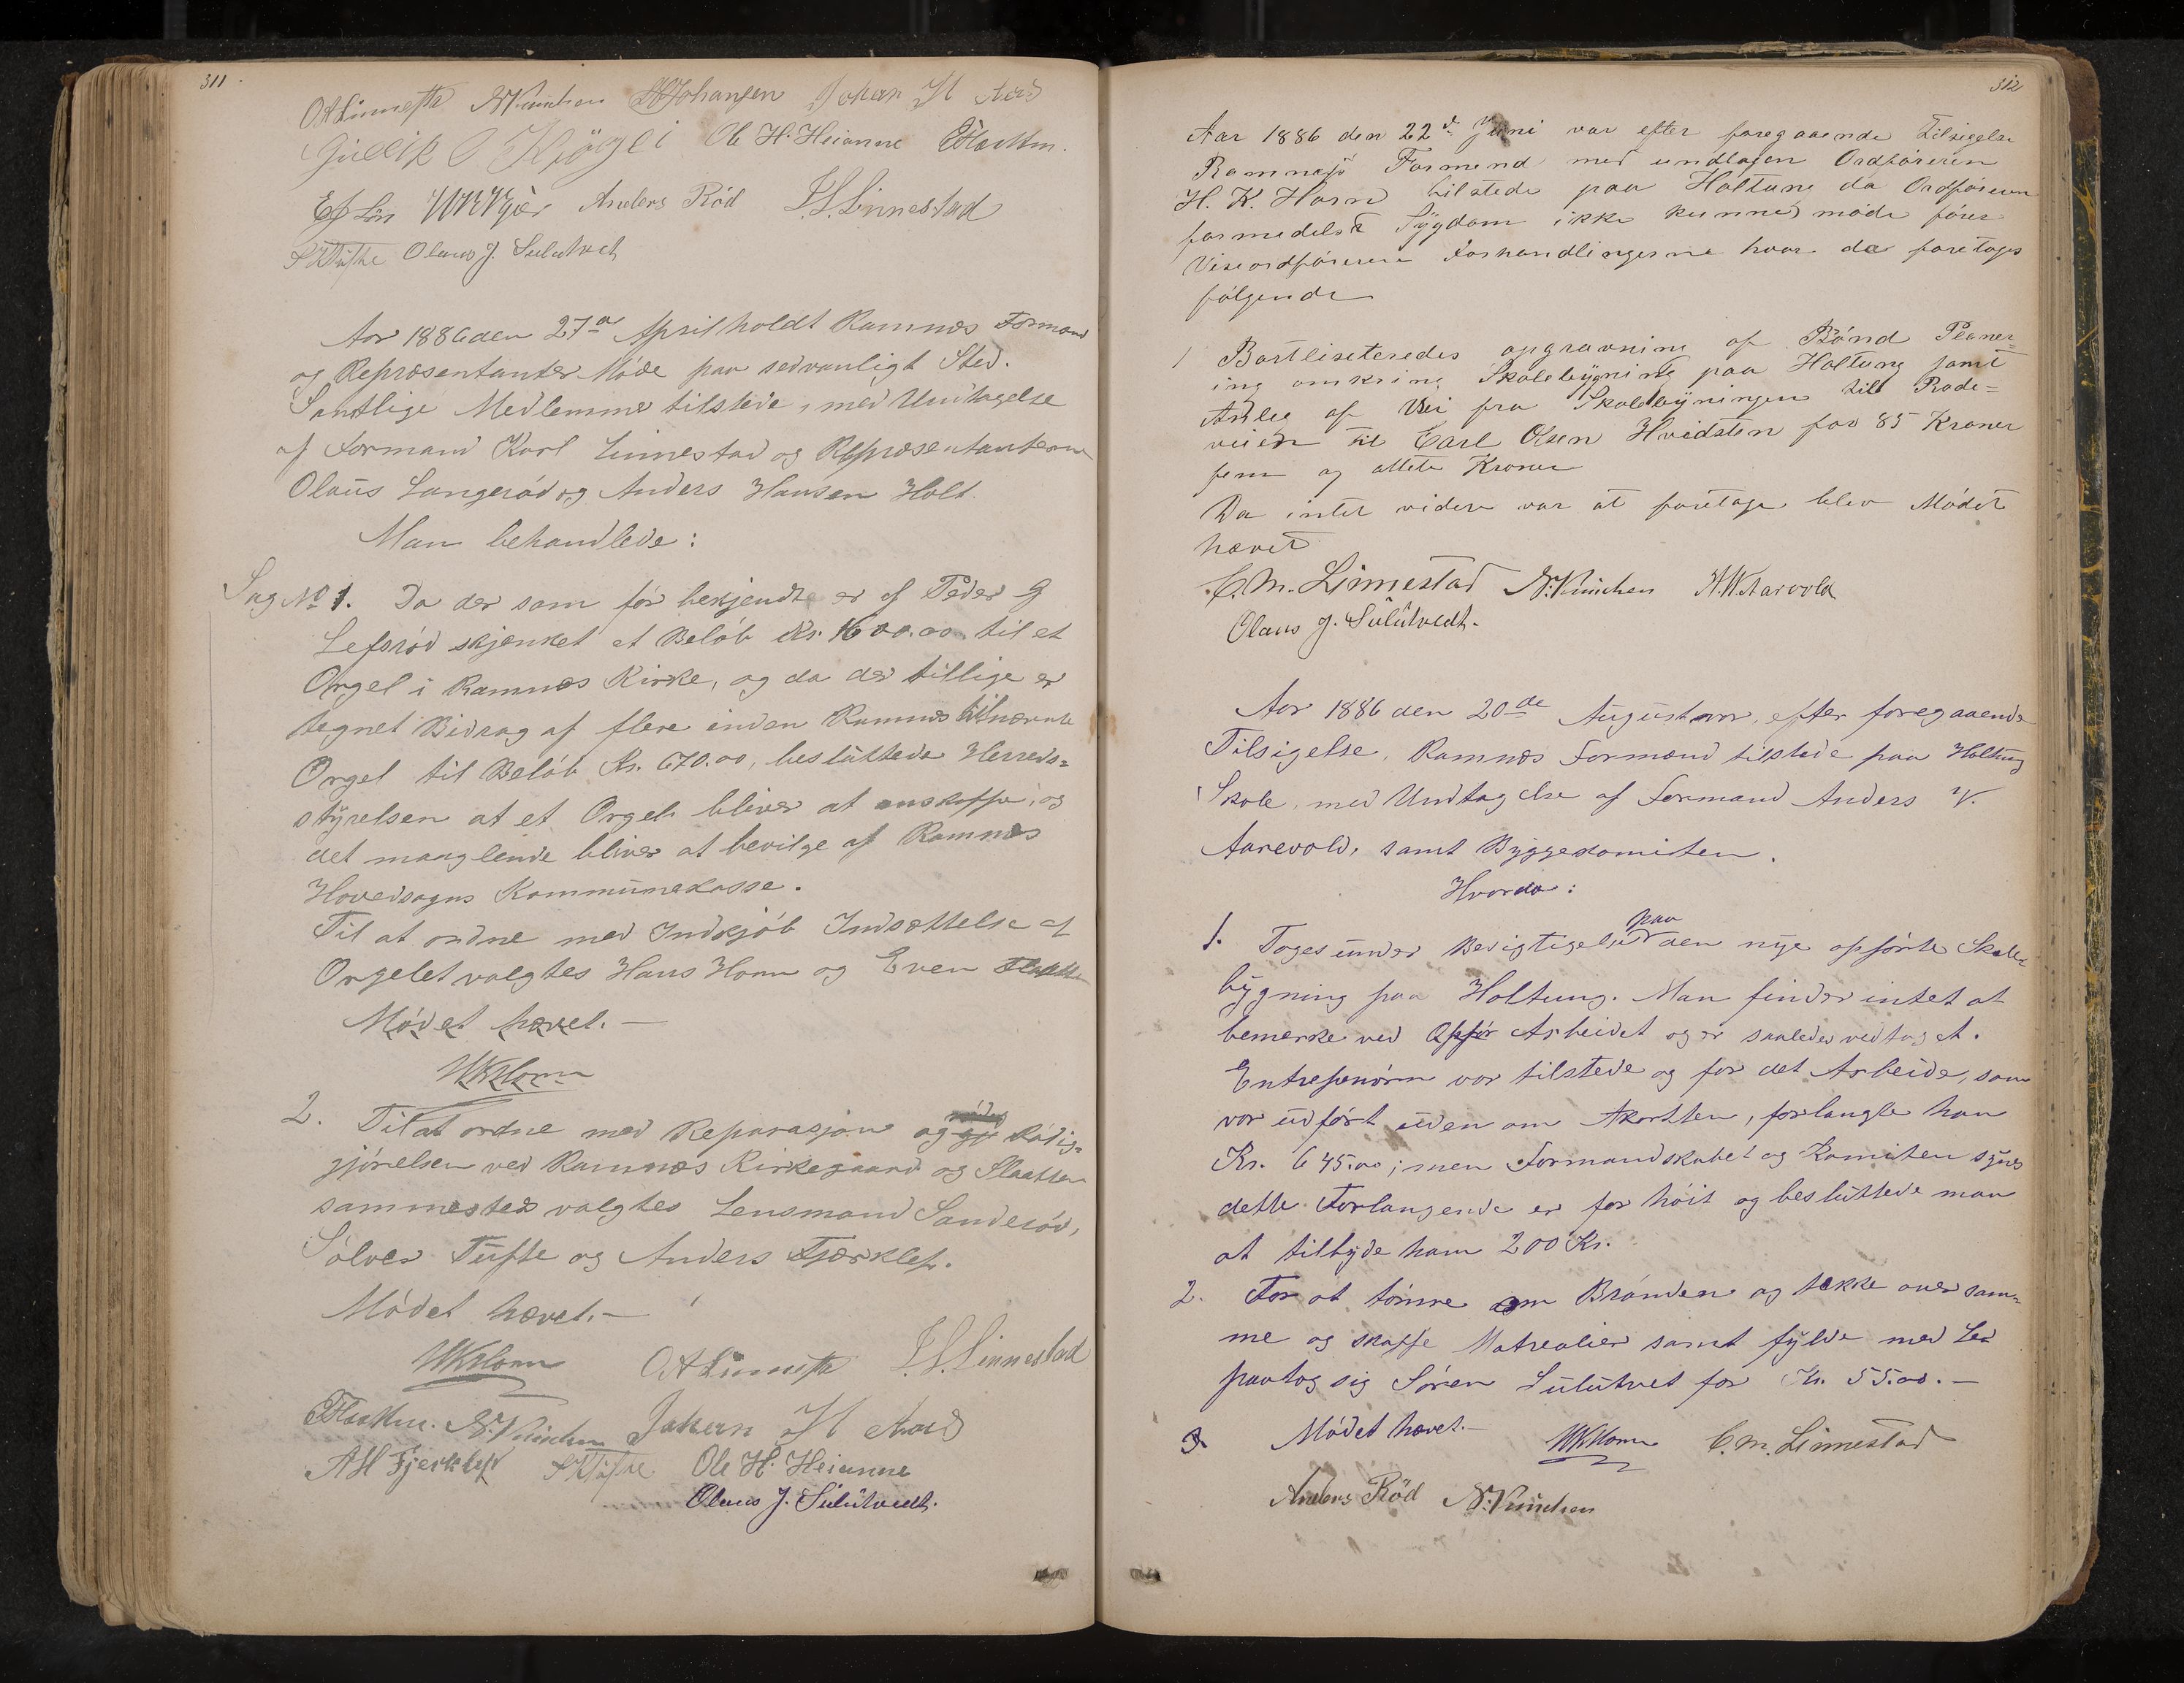 311
O A Linnestad N. Knudsen A Johansen Johan H Aas
Gullik O Kjøgli Ole H. Heianne
Anders Röd L. S. Linnestad
S K Tufte Olaus J. Sulutvet
Aar 1886 den 27de April holdt Ramnæs Formænd
og Repræsentanter Möde paa sedvanligt Sted.
Samtlige Medlemmer tilstede, med Undtagelse
af Formand Karl Linnestad og Repræsentanterne
Olaüs Langeröd og Anders Hansen Holt.
Man behandlede:
Sag No 1. Da der som för bekjendt er af Peder G
Lefsröd skjænket et Belöb Kr. 1600.00 til et
Orgel i Ramnæs Kirke, og da der tillige er
tegnet Bidrag af flere inden Ramnæs til nævnte
Orgel til Belöb Kr. 670.00, beslüttede Herreds-
styrelsen at et Orgel bliver at anskaffe, og
det manglende bliver at bevilge af Ramnæs
Hovedsogns Kommünekasse.
Til at ordne med Indkjöb Indsættelse af
Orgelet valgtes Hans Horn og Even
Mödet hævet. —
HKHorn
2. Til at ordne med Reparasjon og Rödig-
gjörelsen ved Ramnæs Kirkegaard og Slaatten
sammesteds valgtes Lensmand Sanderöd,
Sölver Tüfte og Anders Fjærklep.
Mödet hævet. —
HKHorn O A Linnestad L. S. Linnestad
N. Knudsen Johan H Aas
A H Fjerklep S K Tufte Ole H. Heianne
Olaus J. Sülütvedt.
312
Aar 1886 den 22de Jüni var efter foregaaende Tilsiggelse
Ramnæs Formend med undtagen Ordföreren
H. K. Horn tilstede paa Holtung da Ordföreren
formedelst Sygdom ikke kunne möde förer
Viseordföreren Forhandlingerne hvor da foretoges
fölgende
1 Bortliseteredes opgravning af Bönd Planer=
ing omkring Skolebygning paa Holtung samt
Anleg af Vei fra Skolebyningen til Rode=
veien til Carl Olsen Hvidsten for 85 Kroner
fem og ottete Kroner
Da intet videre var at foretage blev Mödet
hævet
C. M. Linnestad N. Knudsen A. N. Aarvold
Olaus J. Sülütvedt.
Aar 1886 den 20de August var, efter foregaaende
Tilsigelse, Ramnæs Formænd tilstede paa Holtung
Skole, med Undtagelse af Formand Anders N.
Aarevold, samt Byggekomiteen.
Hvorda:
1. Toges ünder Besigtigelse paa den nye opförte Skole-
bygning paa Holtung. Man finder intet at
bemerke ved Opför Arbeidet og er saaledes vedtaget.
Entrepenören var tilstede og for det Arbeide, som
var üdfört üden om Akortten, forlangte han
Kr. 645.00; men Formandskabet og Komiteen synes
dette Forlangende er for höit og beslüttede man
at tilbyde ham 200 Kr.
2. For at tömre om Brönden og tække over sam-
me og skaffe Matrealier samt fylde med Ler
paatog sig Sören Sulutvet for Kr. 55.00. —
3. Mödet hævet. — HKHorn C. M. Linnestad
Anders Röd N. Knudsen